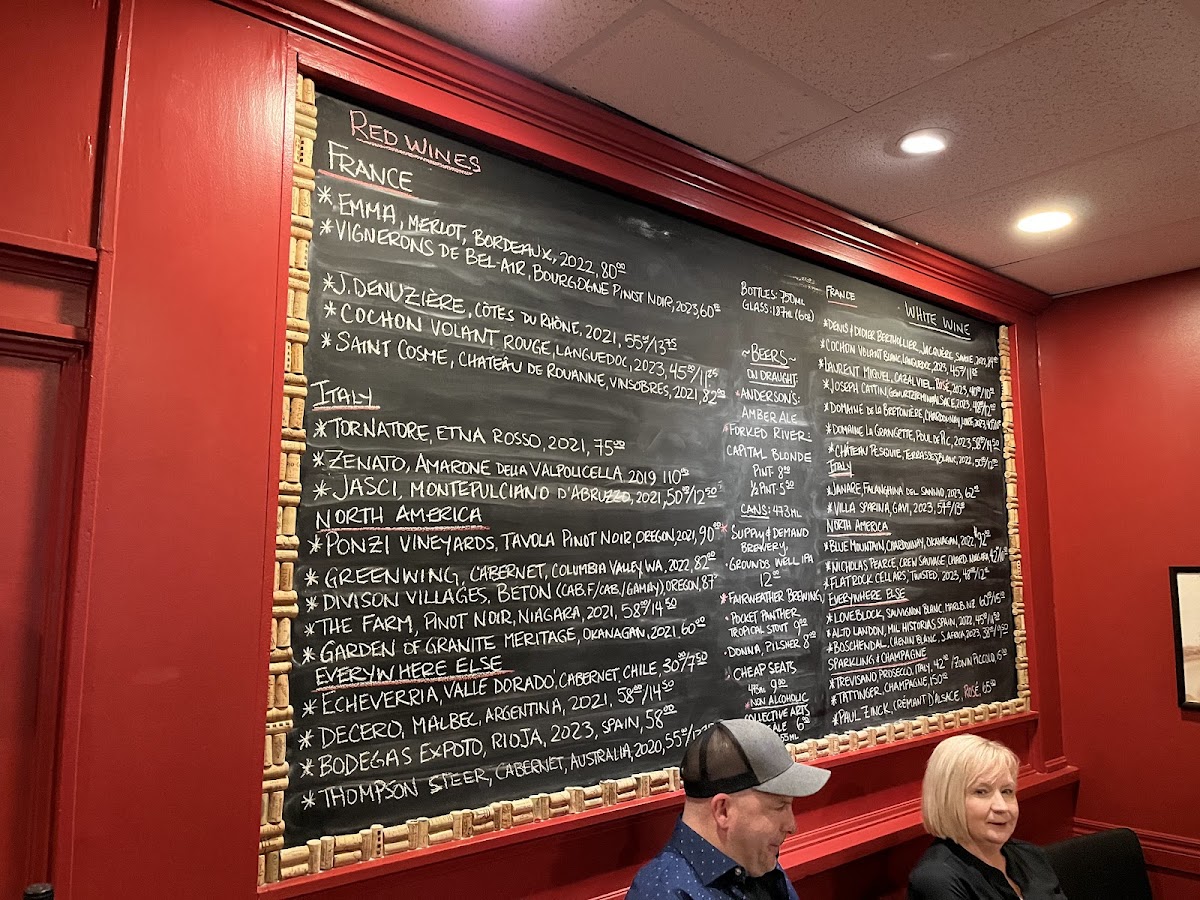 RED WINES
FRANCE
* EMMA, MERLOT, BORDEAUX, 2022, 80⁰⁰
* VIGNERONS DE BEL-AIR, BOURGOGNE PINOT NOIR, 2023, 60⁰⁰
* J. DENUZIÈRE, CÔTES DU RHÔNE, 2021, 55⁰⁰/13⁷⁵
* COCHON VOLANT ROUGE, LANGUEDOC, 2023, 45⁰⁰/11²⁵
* SAINT COSME, CHATEÂU DE ROUANNE, VINSOBRES, 2021, 82⁰⁰
ITALY
* TORNATORE, ETNA ROSSO, 2021, 75⁰⁰
* ZENATO, AMARONE DELLA VALPOLICELLA 2019 110⁰⁰
* JASCI, MONTEPULCIANO D'ABRUZZO, 2021, 50⁰⁰/12⁵⁰
NORTH AMERICA
* PONZI VINEYARDS, TAVOLA PINOT NOIR, OREGON, 2021, 90⁰⁰
* GREENWING, CABERNET, COLUMBIA VALLEY WA, 2022, 82⁰⁰
* DIVISON VILLAGES, BETON (CAB.F/CAB./GAMAY), OREGON, 87⁵
* THE FARM, PINOT NOIR, NIAGARA, 2021, 58⁰⁰/14⁵⁰
* GARDEN OF GRANITE MERITAGE, OKANAGAN, 2021 60⁰⁰
EVERYWHERE ELSE
* ECHEVERRIA, VALLE DORADO, CABERNET, CHILE, 30⁰⁰/7⁵⁰
* DECERO, MALBEC, ARGENTINA, 2021, 58⁰⁰/14⁵⁰
* BODEGAS EXPOTO, RIOJA, 2023, SPAIN, 58⁰⁰
* THOMPSON STEER, CABERNET, AUSTRALIA, 2020, 55⁰⁰
BOTTLES: 750ML
GLASS: 187ML (6oz)
~BEERS~
ON DRAUGHT:
* ANDERSON'S:
AMBER ALE
* FORKED RIVER:
CAPITAL BLONDE
PINT- 8⁰⁰
½ PINT- 5⁵⁰
CANS: 473ML
* SUPPLY & DEMAND
BREWERY,
GROUNDS WELL IPA
12⁰⁰
* FAIRWEATHER BREWING,
* POCKET PANTHER
TROPICAL STOUT 9⁰⁰
* DONNA, PILSNER 8⁰⁰
CHEAP SEATS
9⁰⁰
* NON ALCOHOLIC
COLLECTIVE ARTS
ALE 6⁰⁰
WHITE WINE
FRANCE
* DENIS & DIDIER BERTHOLLIER, JACQUÈRE, SAVOIE,
* COCHON VOLANT BLANC, LANGUEDOC, 2023, 45⁰⁰/11²⁵
* LAURENT MIQUEL, CAZAL VIEL, ROSÉ, 2023, 40⁰⁰/10⁰⁰
* JOSEPH CATTIN, GEWURTZIRMINER, ALSACE, 2023, 48⁰⁰/12⁰⁰
* DOMAINE DE LA BRETONIÈRE, CHARDONNAY, LOIRE, 2023,
* DOMAINE LA GRANGETTE, POUL DE PIC, 2023, 58⁰⁰/14⁵⁰
* CHÂTEAU PESQUIÉ, TERRASSES BLANC, 2022, 50⁰⁰/12⁵⁰
ITALY
* JANARE, FALANGHINA DEL SANNIO, 2023, 62⁰⁰
* VILLA SPARINA, GAVI, 2023, 54⁰⁰/13⁵⁰
NORTH AMERICA
* BLUE MOUNTAIN, CHARDONNAY, OKANAGAN, 2022, 92⁰⁰
* NICHOLAS PEARCE, CREW SAUVAGE, CHARD. NIAGARA,
* FLAT ROCK CELLARS, TWISTED, 2023, 48⁰⁰/12⁰⁰
EVERYWHERE ELSE
* LOVEBLOCK, SAUVIGNON BLANC, MARLB. NZ 60⁰⁰/15⁰⁰
* ALTO LANDON, MIL HISTORIAS, SPAIN, 2022, 45⁰⁰
* BOSCHENDAL, CHENIN BLANC, S. AFRICA, 2023, 38⁰⁰/9⁵⁰
SPARKLING & CHAMPAGNE
* TREVISANO, PROSECCO, ITALY, 42⁰⁰ / ZONIN PICCOLO, 15⁰⁰
* TATTINGER, CHAMPAGNE, 150⁰⁰
* PAUL ZINCK, CRÉMANT D'ALSACE, ROSÉ, 65⁰⁰